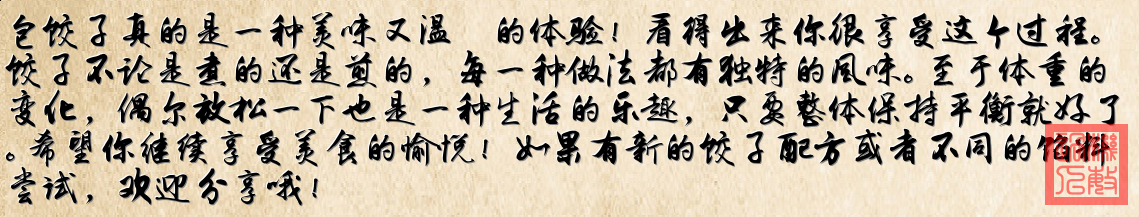 包饺子真的是一种美味又温 的体验！看得出来你很享受这个过程。
饺子不论是煮的还是煎的，每一种做法都有独特的风味。至于体重的
变化，偶尔放松一下也是一种生活的乐趣，只要整体保持平衡就好了
。希望你继续享受美食的愉悦！如果有新的饺子配方或者不同的馅料
尝试，欢迎分享哦！